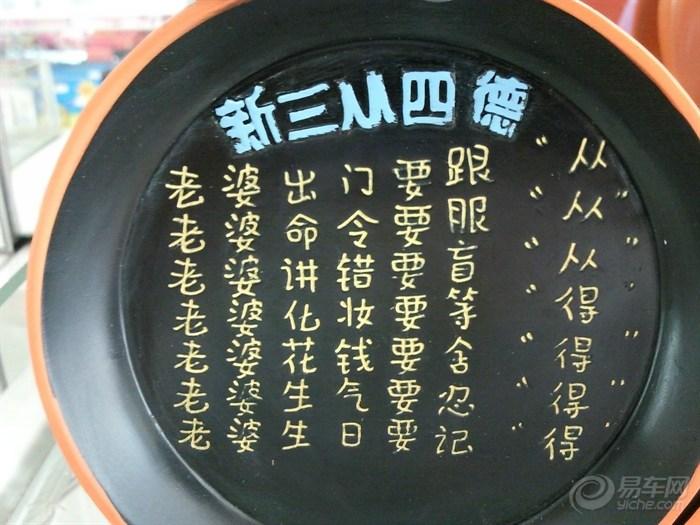 新三从四德
老婆出门要跟“从”
老婆命令要服“从”
老婆讲错要盲“从”
老婆化妆要等“得”
老婆花钱要舍“得”
老婆生气要忍“得”
老婆生日要记“得”
易车网
yiche.com